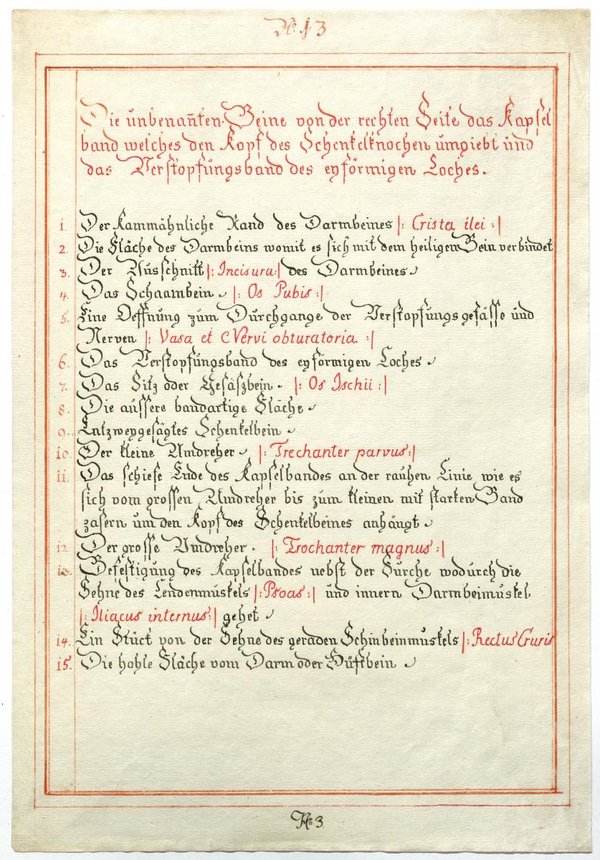 № 13
Die unbenan̄ten Beine von der rechten Seite das Kapsel
band welches den Kopf des Schenkelknochen umgiebt und
das Verstopfungsband des eyförmigen Loches.
1. Der Kammähnliche Rand des Darmbeines |: Crista ilei :|
2. Die Fläche des Darmbeins womit es sich mit dem heiligen Bein verbindet
3. Der Ausschnitt |: Incisura :| des Darmbeines
4. Das Schaambein |: Os Pubis :|
5. Eine Oeffnung zum Durchgange der Verstopfungsgefässe und
Nerven |: Vasa et Nervi obturatoria :|
6. Das Verstopfungsband des eyförmigen Loches
7. Das Sitz oder Gesäszbein |: Os Ischii :|
8. Die aüssere bandartige Fläche
9. Entzweygesägtes Schenkelbein
10. Der kleine Umdreher |: Trechanter parvus :|
11. Das schiefe Ende des Kapselbandes an der rauhen Linie wie es
sich vom grossen Umdreher bis zum kleinen mit starken Band
zasern um den Kopf des Schenkelbeines anhängt
12. Der grosse Umdreher |: Trochanter magnus :|
13. Befestigung des Kapselbandes nebst der Furche wodurch die
Sehne des Lendenmuskels |: Psoas :| und innern Darmbeimuskel
|: Iliacus internus :| gehet
14. Ein Stück von der Sehne des geraden Schinbeinmuskels |: Rectus Cruris
15. Die hohle Fläche vom Darm oder Hüftbein
№ 3